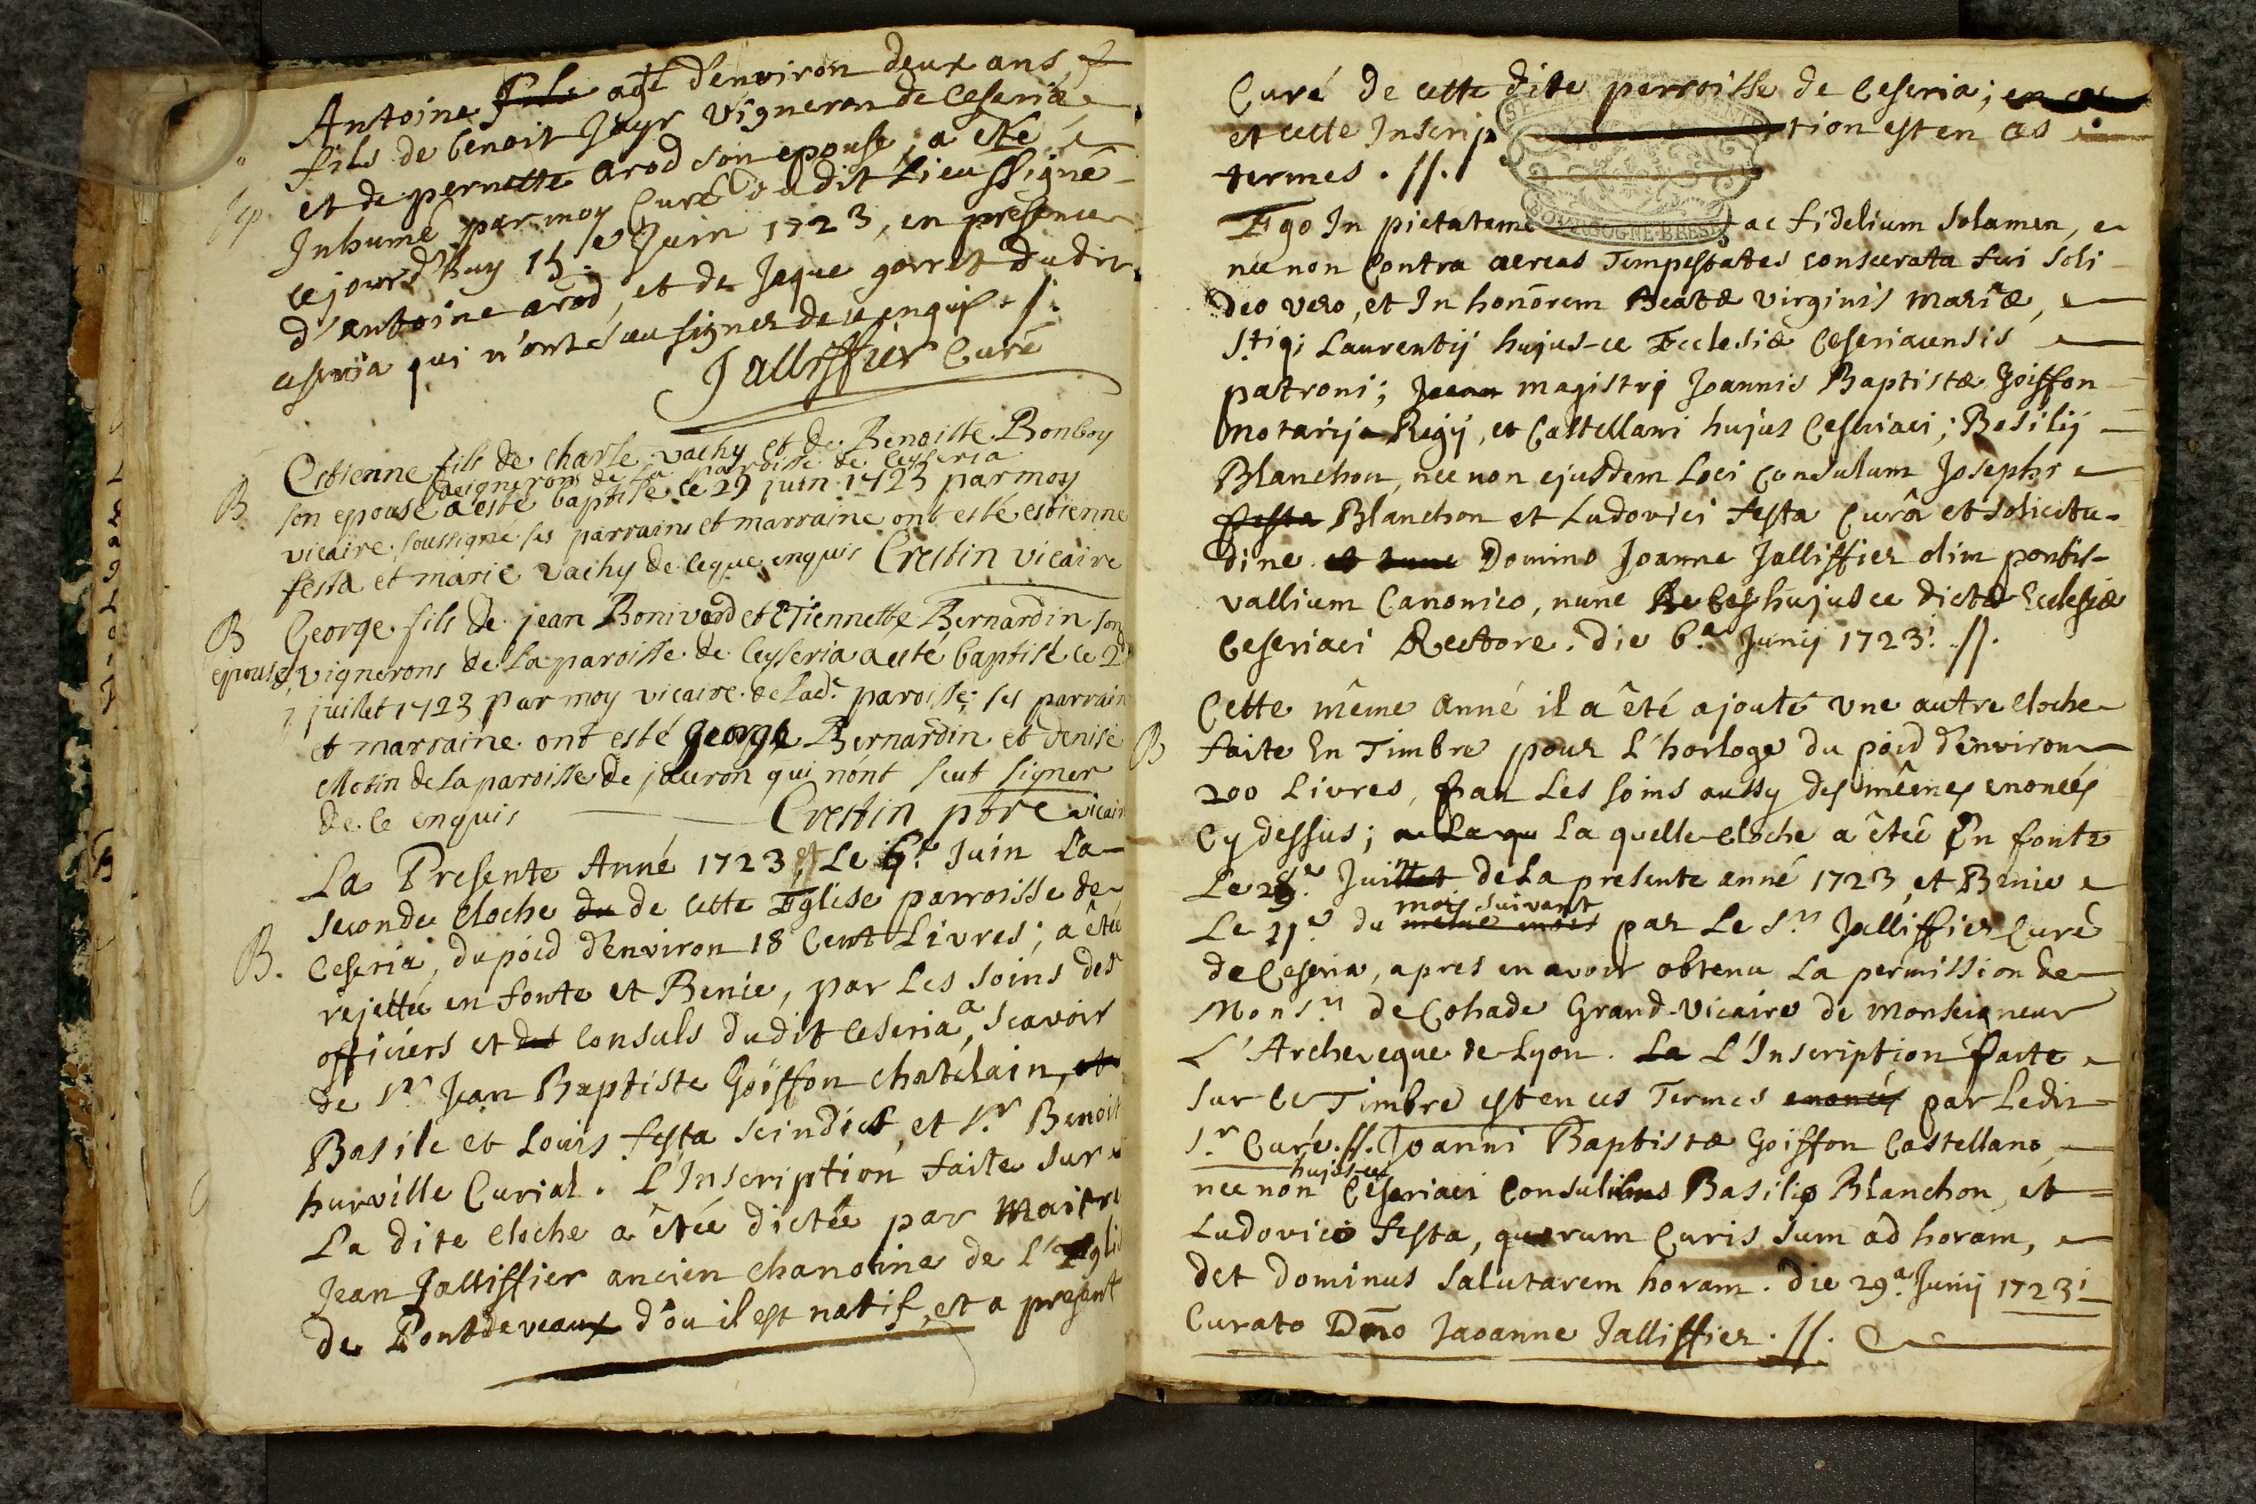 Antoine fils agé d'environ deux ans,
fils de benoit Jayr Vigneron de Ceseria,
et de pernette arod son epouse, a été
Inhumé par moy Curé du dit Lieu ssigné
cejourd'huy 15.e Juin 1723, en presence
d'antoine arod, et de Jaque gorret dudit
ceseria qui n'ont sçeu signer de ce enquis .//.
Jalliffier Curé
Estienne fils de charle vachy et de Benoitte Bonboy
vignerons de la paroisse de Ceyseria
B son epouse a esté baptisé le 29 juin 1723 par moy
vicaire soussigné ses parrains et marraine ont esté estienne
festa et marie vachy de ceque enquis Crestin vicaire
B George fils de jean Bonivard et Etiennette Bernardin son
epouse, vignerons de la paroisse de Ceyseria a esté baptisé le 2d
juillet 1723 par moy vicaire de lad.e paroisse; ses parrain
et marraine ont esté george Bernardin et denise
Motin de la paroisse de jasseron qui n'ont sceut signer
de ce enquis Crestin ptre vicair
La Presente Anné 1723 et Le 6.e Juin La
seconde cloche du de cette Eglise parroisse de
B. Ceseria, du poid d'environ 18 Cent Livres; a êtée
rejettée en fonte et Benie, par Les soins des
officiers et des consuls dudit Ceseria, scavoir
de S.r Jean Baptiste Goiffon chatelain, et
Basile et Louis festa scindict, et S.r Benoit
hurville Curial. L'Inscription faite sur
La dite cloche a êtée dictée par Maitre
Jean Jalliffier ancien chanoine de L'Eglis
de Pontdeveaux d'ou il est natif, et a present
Curé de cette dite perroisse de Ceseria; en
et cette Inscription est en ces
termes .//.
Ego In pietatem ac fidelium solamen,
nec non Contra aereas Tempestates consecrata fui soli
deo vero, et In honorem Beatæ virginis mariæ,
S.tiq; Laurentij hujus-ce Ecclesiæ Ceseriacensis
patroni; Joan magistri Joannis Baptistæ Goiffon
notarij Regij, et Castellani hujus Ceseriaci; Basilij
Blanchon, nec non ejusdem Loci Consulum Josephi
festa Blanchon et Ludovici festa Curâ et solicitu-
dine et tunc Domino Joanne Jalliffier olim pontis-
vallium Canonico, nunc hujusce dictæ Ecclesiæ
Ceseriaci Rectore. die 6.a Junij 1723. .//.
Cette même anné il a êté ajouté une autre cloche
B faite En Timbre pour L'horloge du poid d'environ
200 Livres, par Les soins aussy des mêmes enoncés
Cy dessus; a La qu La quelle cloche a êtée En fonte
Le 29.e Juillet de La presente anné 1723, et Benie
mois suivant
Le 21.e du même mois par Le S.r Jalliffier Curé
de Ceseria, apres en avoir obtenu La permission de
Mons.r de Cohade Grand-Vicaire de Monseigneur
L'Archeveque de Lyon. La L'Inscription faite
sur ce Timbre est en ces Termes enoncés par Ledit
S.r Curé .//. Joanni Baptistæ Goiffon Castellano,
hujus-ce
nec non Ceseriaci Consulibus Basilio Blanchon, et
Ludovico festa, quorum Curis sum ad horam,
det Dominus salutarem horam. Die 29.a Junij 1723.
Curato Dno Jaoanne Jalliffier .//.